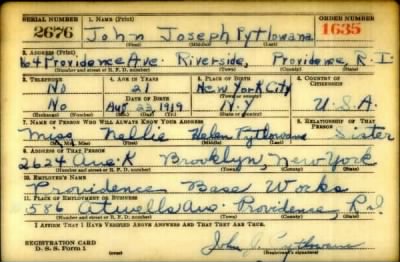 SERIAL NUMBER 1. NAME (Print) ORDER NUMBER
2676 John Joseph Pytlowana 1635
(First) (Middle) (Last)
2. ADDRESS (Print)
64 Providence Ave. Riverside, Providence, R. I
(Number and street or R. F. D. number) (Town) (County) (State)
3. TELEPHONE 4. AGE IN YEARS 5. PLACE OF BIRTH 6. COUNTRY OF CITIZENSHIP
No 21 New York City
DATE OF BIRTH (Town or county)
No Aug 23 1919 N.Y U.S.A.
(Exchange) (Number) (Mo.) (Day) (Yr.) (State or country)
7. NAME OF PERSON WHO WILL ALWAYS KNOW YOUR ADDRESS 8. RELATIONSHIP OF THAT PERSON
Miss Nellie Helen Pytlowana Sister
(Mr., Mrs., Miss) (First) (Middle) (Last)
9. ADDRESS OF THAT PERSON
2624 Ave. K Brooklyn, New York
(Number and street or R. F. D. number) (Town) (County) (State)
10. EMPLOYER'S NAME
Providence Base Works
11. PLACE OF EMPLOYMENT OR BUSINESS
586 Atwells Ave. Providence, R.I
(Number and street or R. F. D. number) (Town) (County) (State)
I AFFIRM THAT I HAVE VERIFIED ABOVE ANSWERS AND THAT THEY ARE TRUE.
REGISTRATION CARD
D. S. S. Form 1 John J. Pytlowana
(Registrant's signature)